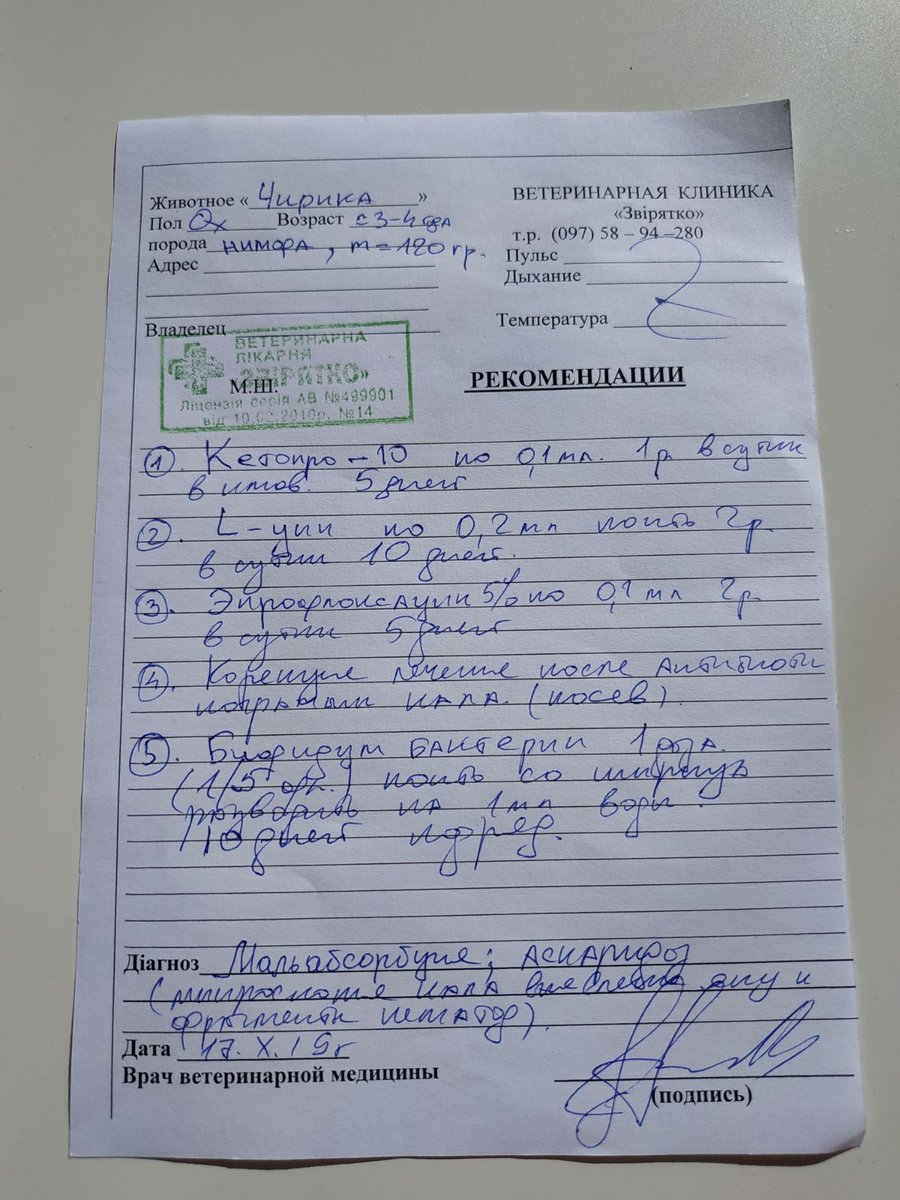 Животное « Чирика »
Пол Возраст с 3-4 года
порода нимфа, m=120гр.
Адрес
Владелец
ВЕТЕРИНАРНАЯ КЛИНИКА
«Звірятко»
т.р. (097) 58 – 94 –280
Пульс
Дыхание
Температура
ВЕТЕРИНАРНА
ЛІКАРНЯ
«ЗВІРЯТКО»
М.Ш.
Ліцензія серія АВ №499901
від 10. 2010р. №14
РЕКОМЕНДАЦИИ
1. Кетопро-10 по 0,1мл. 1р в сутки
5 дней
2. L-цин по 0,2мл поить 2р.
в сутки 10 дней.
3. Энрофлоксацин 5% по 0,1 мл 2р.
в сутки 5 дней
4. лечение после
кала. (посев).
5. Бифидум бактерии 1 доза.
(1/5 ) поить со шприца
разводить на 1мл воды.
10 дней
Діагноз Мальабсорбция; аскариды
(микроскопия кала и
фрагменты нематод).
Дата 17.X.19г
Врач ветеринарной медицины
(подпись)